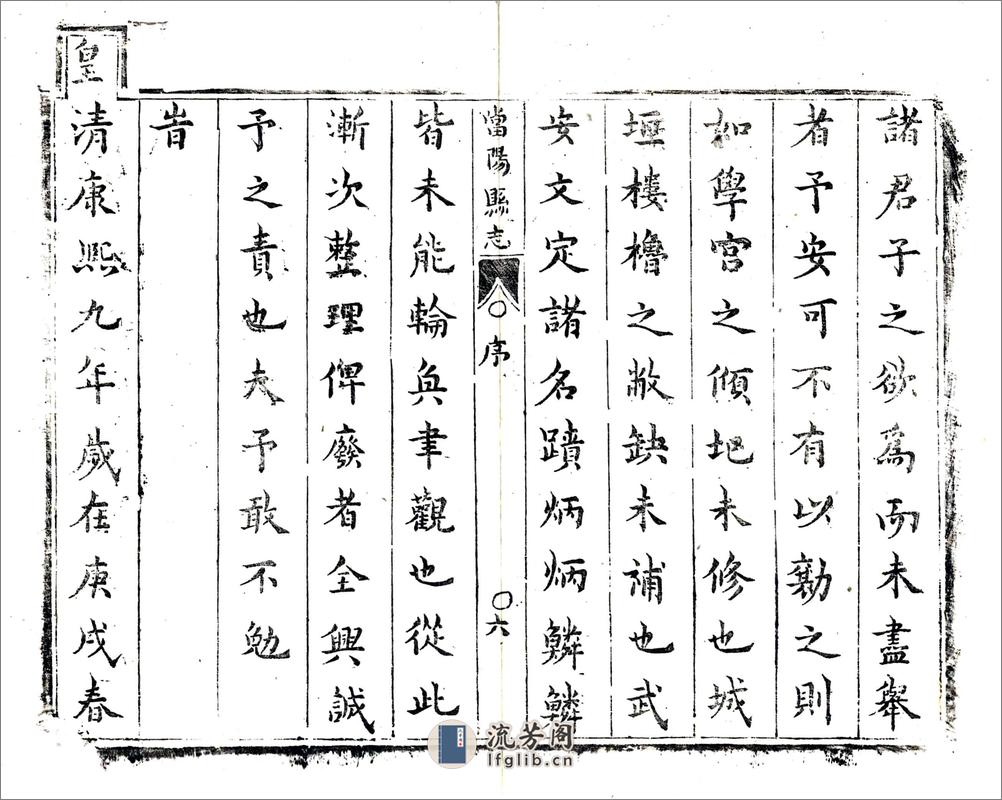 諸君子之欲爲而未盡舉
者予安可不有以勷之則
如學宮之傾圮未修也城
垣樓櫓之敝缺未補也武
安文定諸名蹟炳炳鱗鱗
當陽縣志 序 六
皆未能輪奐聿觀也從此
漸次整理俾廢者全興誠
予之責也夫予敢不勉
旹
皇清康熙九年歲在庚戌春
流芳阁
lfglib.cn